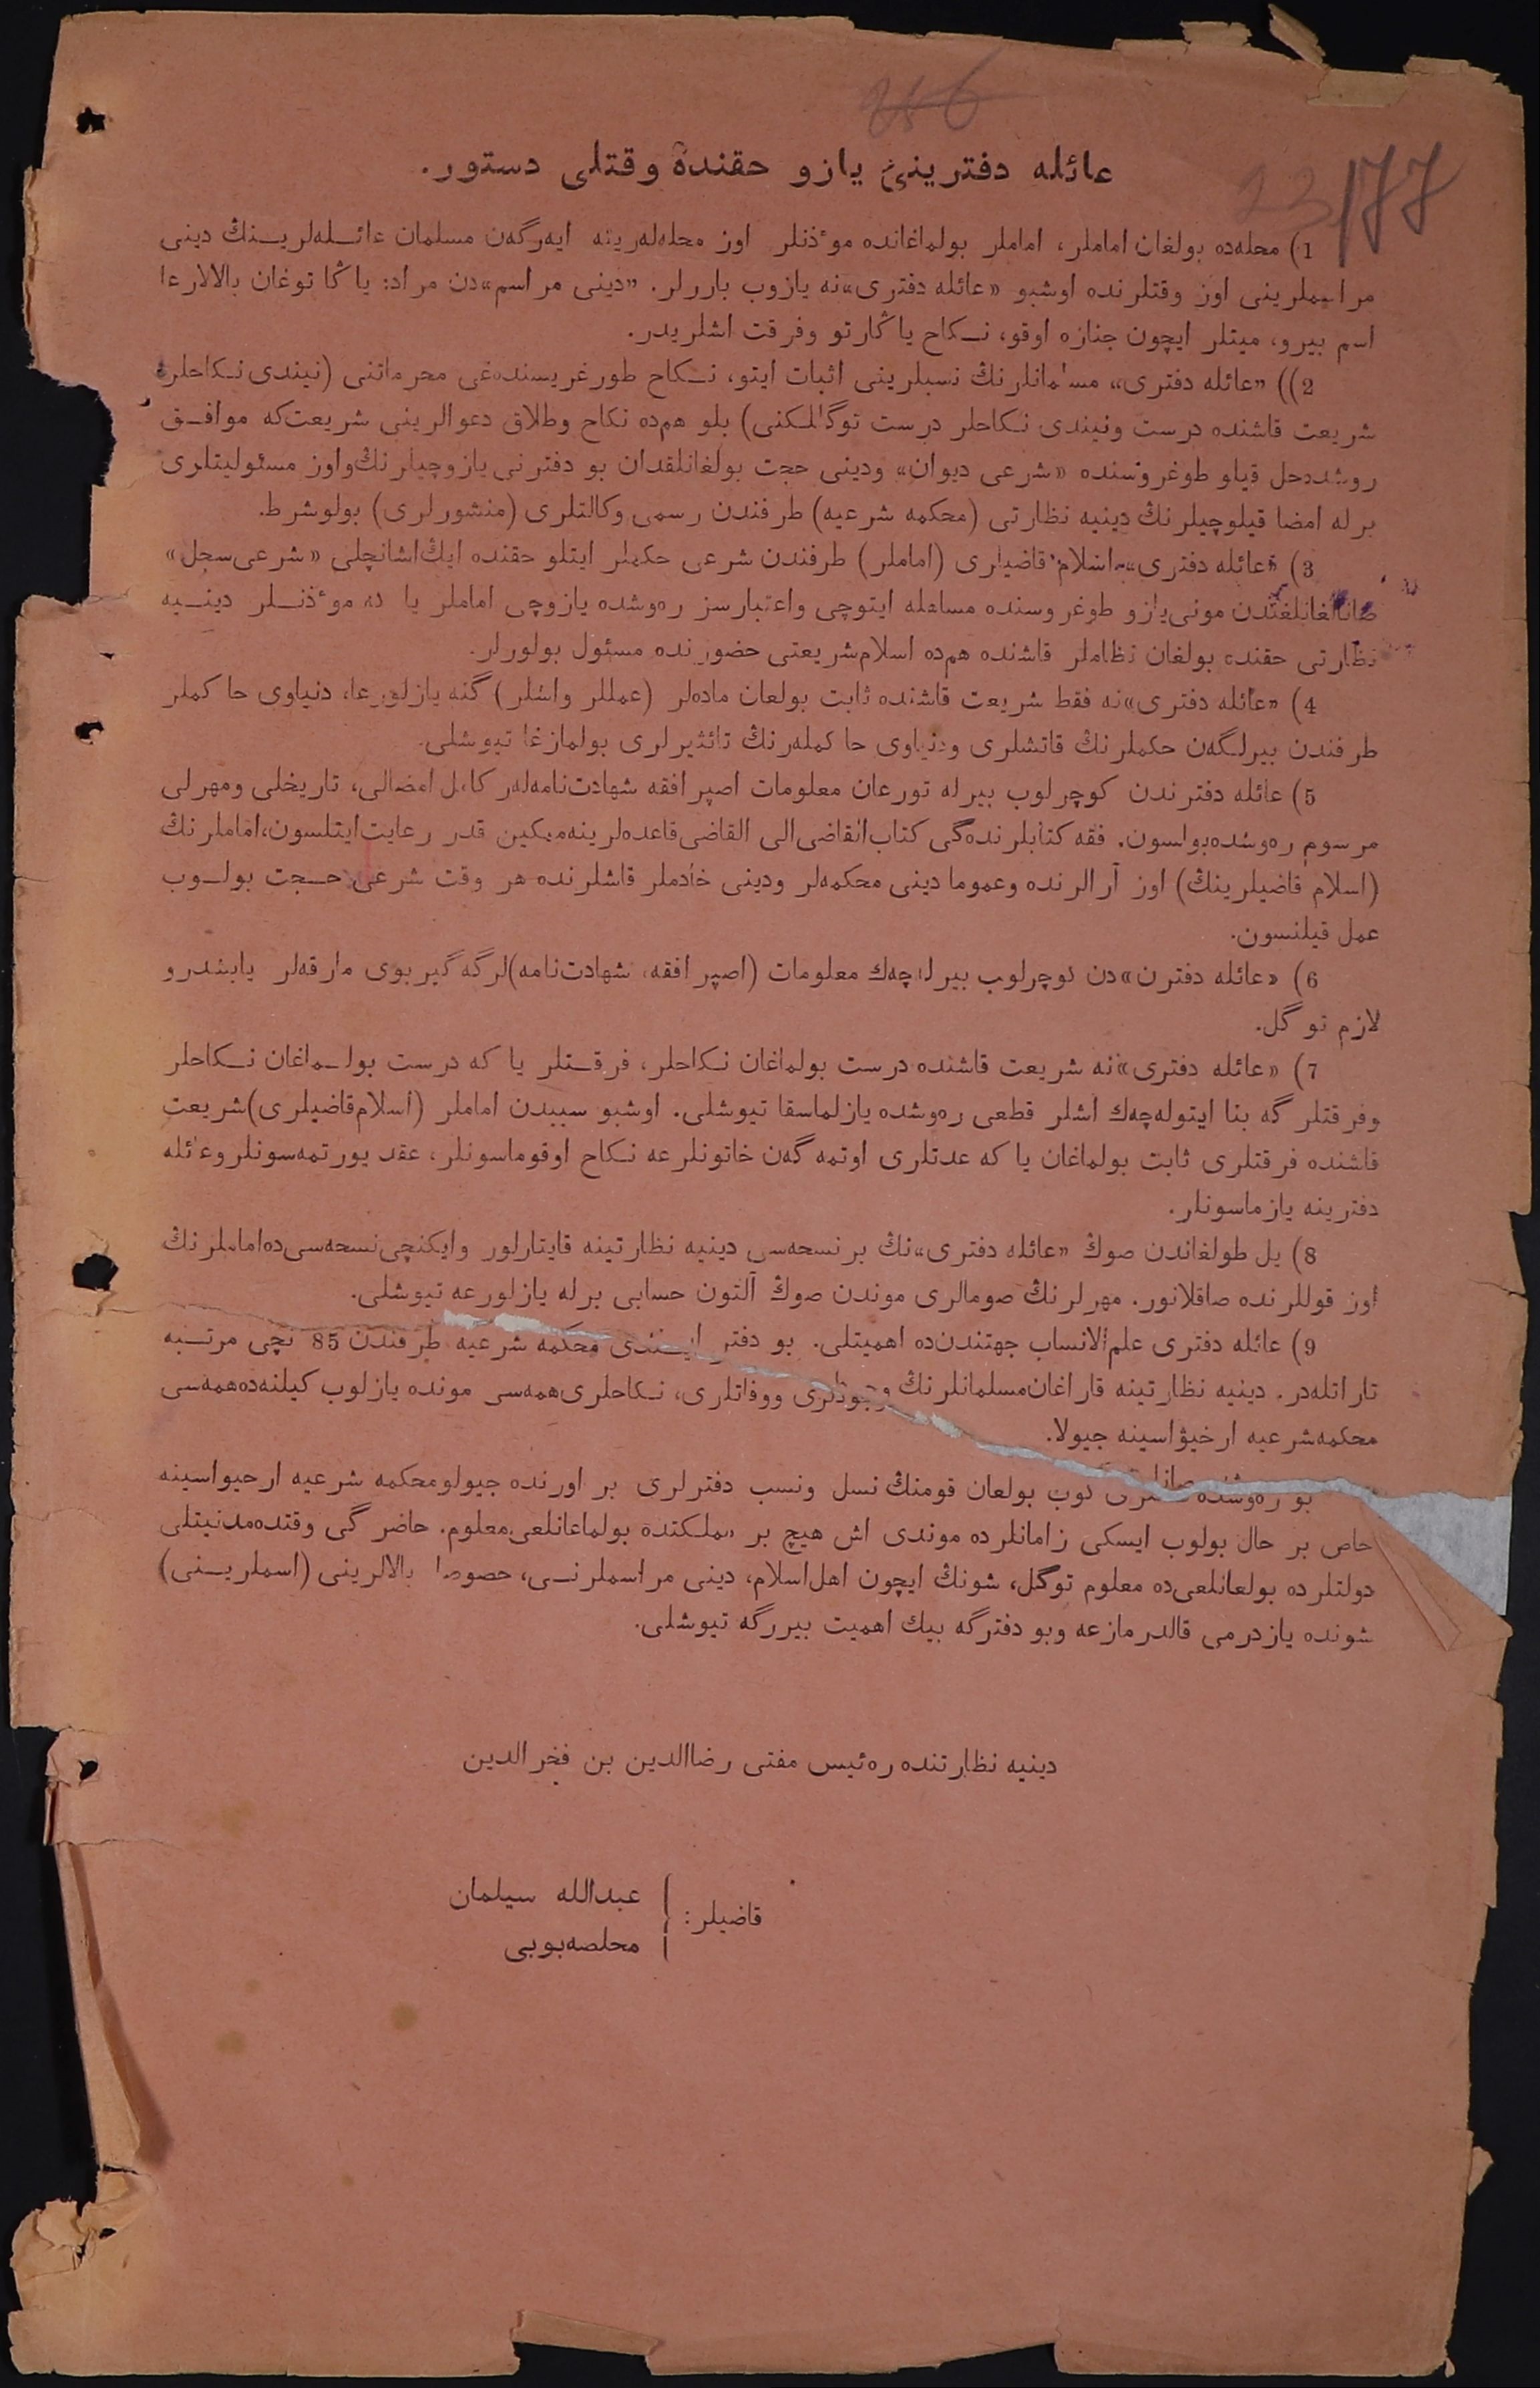 256
23/77
عائله دفترینی یازو حقنده وقتلی دستور.
1) محله‌ده بولغان اماملر، اماملر بولماغانده موٴذنلر اوز محله‌لەرینه ایەرگەن مسلمان عائـــله‌لریــنڭ دینی
مراسملرینی اوز وقتلرنده اوشبو «عائله دفتری»نه یازوب باررلر. «دینی مراسم»دن مراد: یاڭا توغان بالالارعا
اسم بیرو، میتلر ایچون جنازه اوقو، نــکاح یاڭارتو وفرقت اشلریدر.
2)) «عائله دفتری» مسلمانلرنڭ نسبلرینی اثبات ایتو، نــکاح طورغریسنده‌غی محرماتنی (نیندی نــکاحلر
شریعت قاشنده درست ونیندی نــکاحلر درست توگللکنی) بلو هم‌ده نکاح وطلاق دعوالرینی شریعت‌که موافــق
روشده‌حل قیلو طوغروسنده «شرعی دیوان» ودینی حجت بولغانلقدان بو دفترنی یازوچیلرنڭ‌واوز مسئولیتلری
برله امضا قیلوچیلرنڭ دینیه نظارتی (محکمه شرعیه) طرفندن رسمی وکالتلری (منشورلری) بولوشرط.
3) «عائله دفتری» اسلام قاضیلری (اماملر) طرفندن شرعی حکملر ایتلو حقنده ایڭ‌اشانچلی «شرعی‌سجل»
صانالغانلغتدن مونی‌یازو طوغروسنده مساهله ایتوچی واعتبارسز ره‌وشده یازوچی اماملر یا که موٴذنــلر دینــیه
نظارتی حقنده بولغان نظاملر قاشنده هم‌ده اسلام‌شریعتی حضورنده مسئول بولورلر.
4) «عائله دفتری»نه فقط شریعت قاشنده ثابت بولعان ماده‌لر (عمللر واشلر) گنه یازلورعا، دنیاوی حاکملر
طرفندن بیرلگەن حکملرنڭ قاتشلری ودنیاوی حاکمله‌رنڭ تائثیرلری بولمازغا تیوشلی.
5) عائله دفترندن کوچرلوب بیرله تورعان معلومات اصپرافقه شهادت‌نامه‌لەر کامل امضالی، تاریخلی ومهرلی
مرسوم ره‌وشده‌بولسون. فقه کتابلرنده‌گی کتاب‌القاضی‌الی القاضی‌قاعده‌لرینه‌میکین قدر رعایت‌ایتلسون،اماملرنڭ
(اسلام قاضیلرینڭ) اوز آرالرنده وعموما دینی محکمه‌لر ودینی خادملر قاشلرنده هر وقت شرعی حــجت بولــوب
عمل قیلنسون.
6) «عائله دفترن»دن کوچرلوب بیرله‌چەك معلومات (اصپرافقه، شهادت‌نامه)لرگه گیربوی مارقه‌لر یابشدرو
لازم توگل.
7) «عائله دفتری»نه شریعت قاشنده درست بولماغان نــکاحلر، فرقــتلر یا که درست بولــماغان نــکاحلر
وفرقتلرگه بنا ایتوله‌چەك اشلر قطعی ره‌وشده یازلماسقا تیوشلی. اوشبو سببدن اماملر (اسلام‌قاضیلری)شریعت
قاشنده فرقتلری ثابت بولماغان یا که عدتلری اوتمه‌گەن خاتونلرعه نــکاح اوقوماسونلر، عقد یورتمه‌سونلروعائله
دفترینه یازماسونلر.
8) یل طولغاندن صوڭ «عائله دفتری»نڭ برنسحه‌سی دینیه نظارتینه قایتارلور وایکنچی‌نسحه‌سی‌ده‌اماملرنڭ
اوز قوللرنده صاقلانور. مهرلرنڭ صومالری موندن صوڭ آلتون حسابی برله یازلورعه تیوشلی.
9) عائله دفتری علم‌الانساب جهتندن‌ده اهمیتلی. بو دفتر محکمه شرعیه طرفندن 85 نچی مرتــبه
تاراتله‌در. دینیه نظارتینه قاراغان‌مسلمانلرنڭ وجودلری ووفاتلری، نــکاحلری‌همه‌سی مونده یازلوب کیلنه‌ده‌همه‌سی
محکمه‌شرعیه ارخیۋاسینه جیولا.
بو ره‌وشده کوب بولعان قومنڭ نسل ونسب دفترلری بر اورنده جیولومحکمه شرعیه ارحیواسینه
خاص بر حال بولوب ایسکی زامانلرده موندی اش هیچ بر مملکتده بولماعانلعی‌معلوم. حاضرگی وقتده‌مدنیتلی
دولتلرده بولعانلعی‌ده معلوم توگل، شونڭ ایچون اهل‌اسلام، دینی مراسملرنــی، حصوصا بالالرینی (اسملریــنی)
شونده یازدرمی قالدرمازعه وبو دفترگه بیك اهمیت بیررگه تیوشلی.
دینیه نظارتنده ره‌ئیس مفتی رضاالدین بن فخرالدین
قاضیلر: عبدالله سیلمان
محلصه‌بوبی